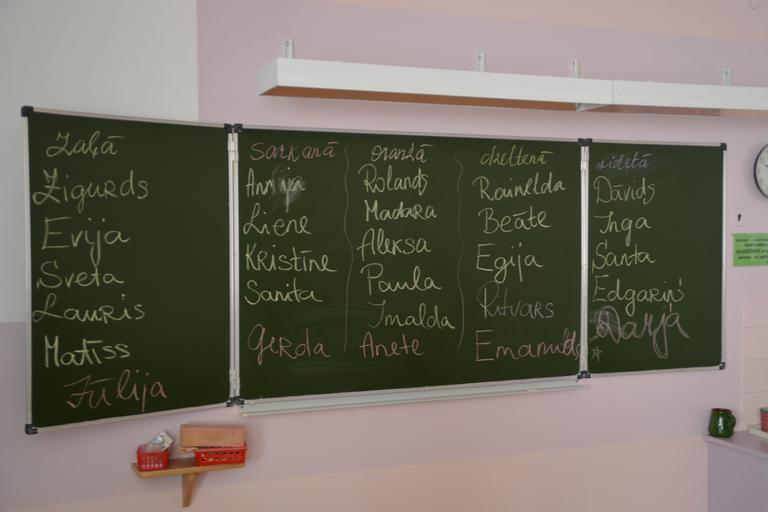 zaļā
Žigurds
Evija
Sveta
Lauris
Matīss
Jūlija
sarkanā
Annija
Liene
Kristīne
Sanita
Gerda
oranžā
Rolands
Madara
Aleksa
Paula
Imalda
Anete
dzeltenā
Rainelda
Beāte
Egija
Ritvars
Emanuels
violetā
Dāvids
Inga
Santa
Edgariņš
Darja